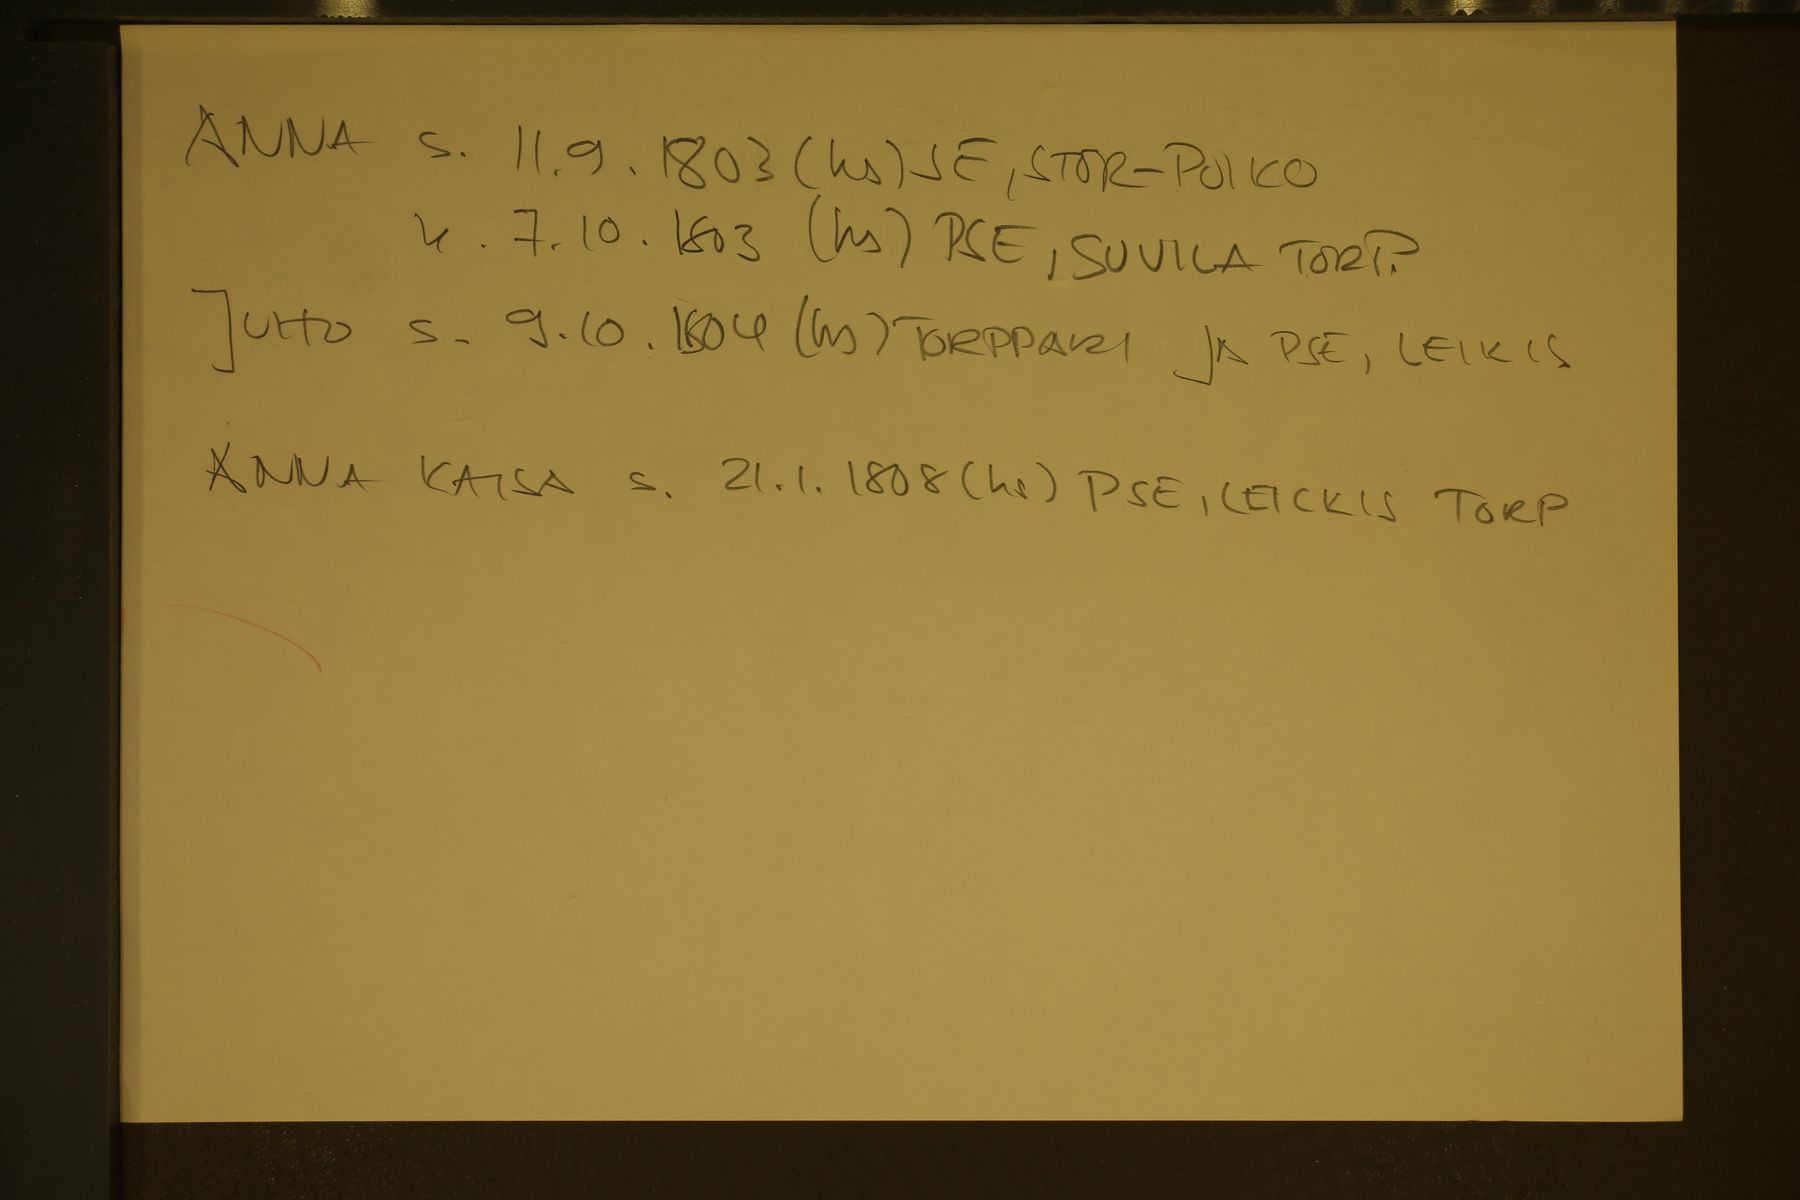 ANNA s. 11.9.1803 (hs) SE, STOR-POIKO
k. 7.10.1803 (hs) PSE, SUVILA TORP.
JUHO s. 9.10.1804 (hs) TORPPARI JA PSE, LEIKIS
ANNA KAISA s. 21.1.1808 (hs) PSE, LEICKIS TORP